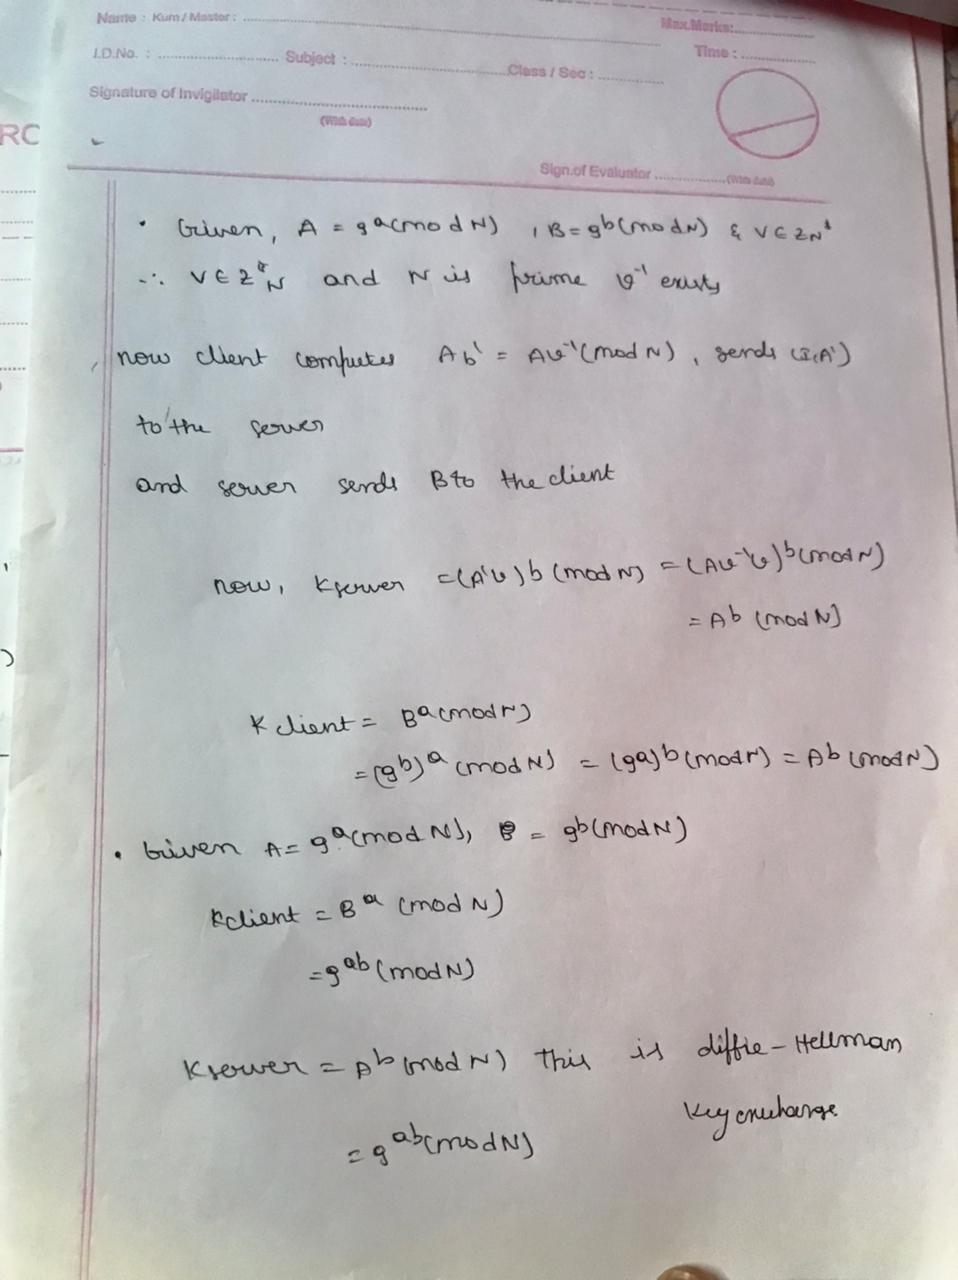 Name : Kum / Master :
Max.Marks:
I.D.No. : Subject : Class / Sec :
Time :
Signature of Invigilator
(With date)
RC
Sign.of Evaluator (With date)
• Given, A = g^a(mod N) , B = g^b(mod N) & V ∈ Z_N^*
∴ V ∈ Z^*_N and N is prime v^-1 exists
now client computes A' = Av^-1 (mod N), sends (I,A')
to the server
and server sends B to the client
now, Kserver = (A'v)^b (mod N) = (Av^-1v)^b (mod N)
= A^b (mod N)
K client = B^a (mod N)
= (g^b)^a (mod N) = (g^a)^b (mod N) = A^b (mod N)
• Given A = g^a (mod N), B = g^b (mod N)
Kclient = B^a (mod N)
= g^ab (mod N)
Kserver = A^b (mod N) This is diffie - Hellman
Key
= g^ab (mod N)